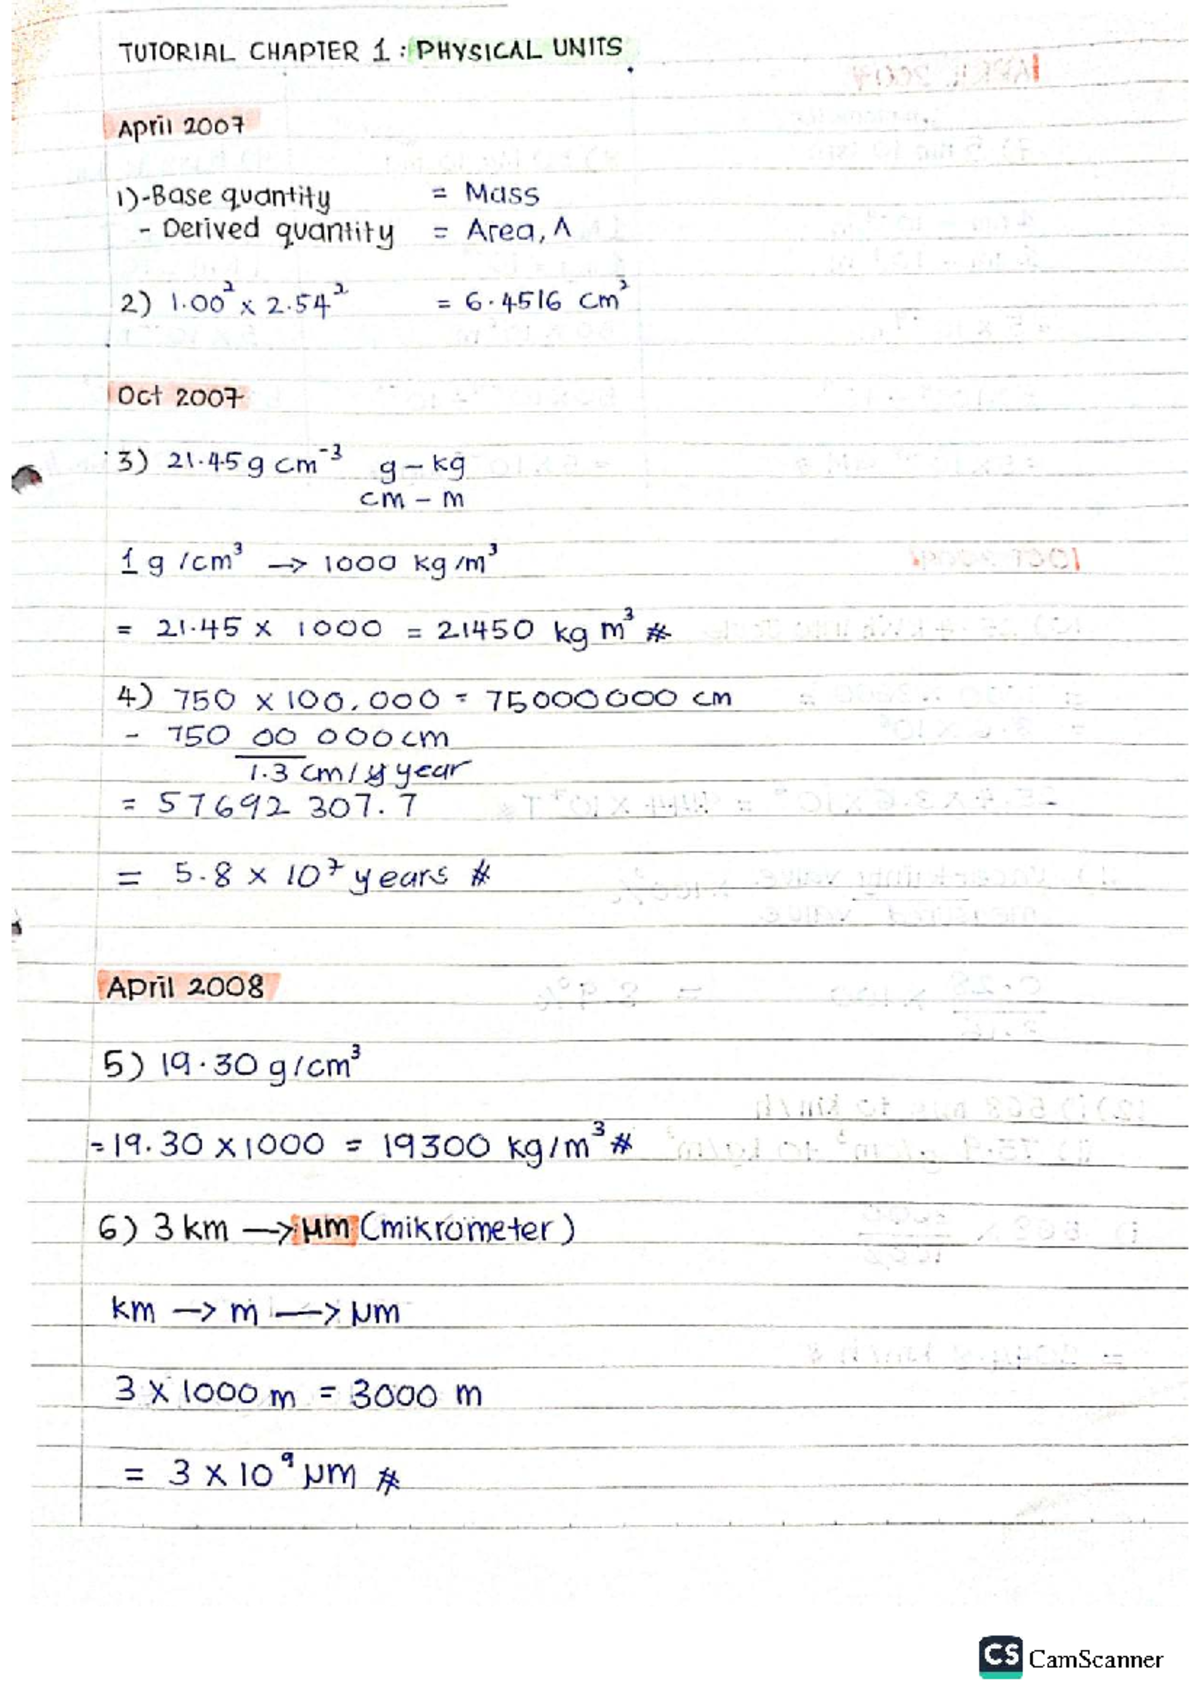 TUTORIAL CHAPTER 1 : PHYSICAL UNITS
April 2007
1) -Base quantity = Mass
- Derived quantity = Area, A
2) 1.00² x 2.54² = 6.4516 cm²
Oct 2007
3) 21.45 g cm⁻³ g – kg
cm – m
1 g /cm³ → 1000 kg /m³
= 21.45 x 1000 = 21450 kg m³ #
4) 750 x 100,000 = 75000000 cm
- 750 00 000 cm
1.3 cm / y year
= 57692 307.7
= 5.8 x 10⁷ years #
April 2008
5) 19.30 g/cm³
= 19.30 x 1000 = 19300 kg/m³ #
6) 3 km → µm (mikrometer)
km → m → µm
3 x 1000 m = 3000 m
= 3 x 10⁹ µm #
CS CamScanner